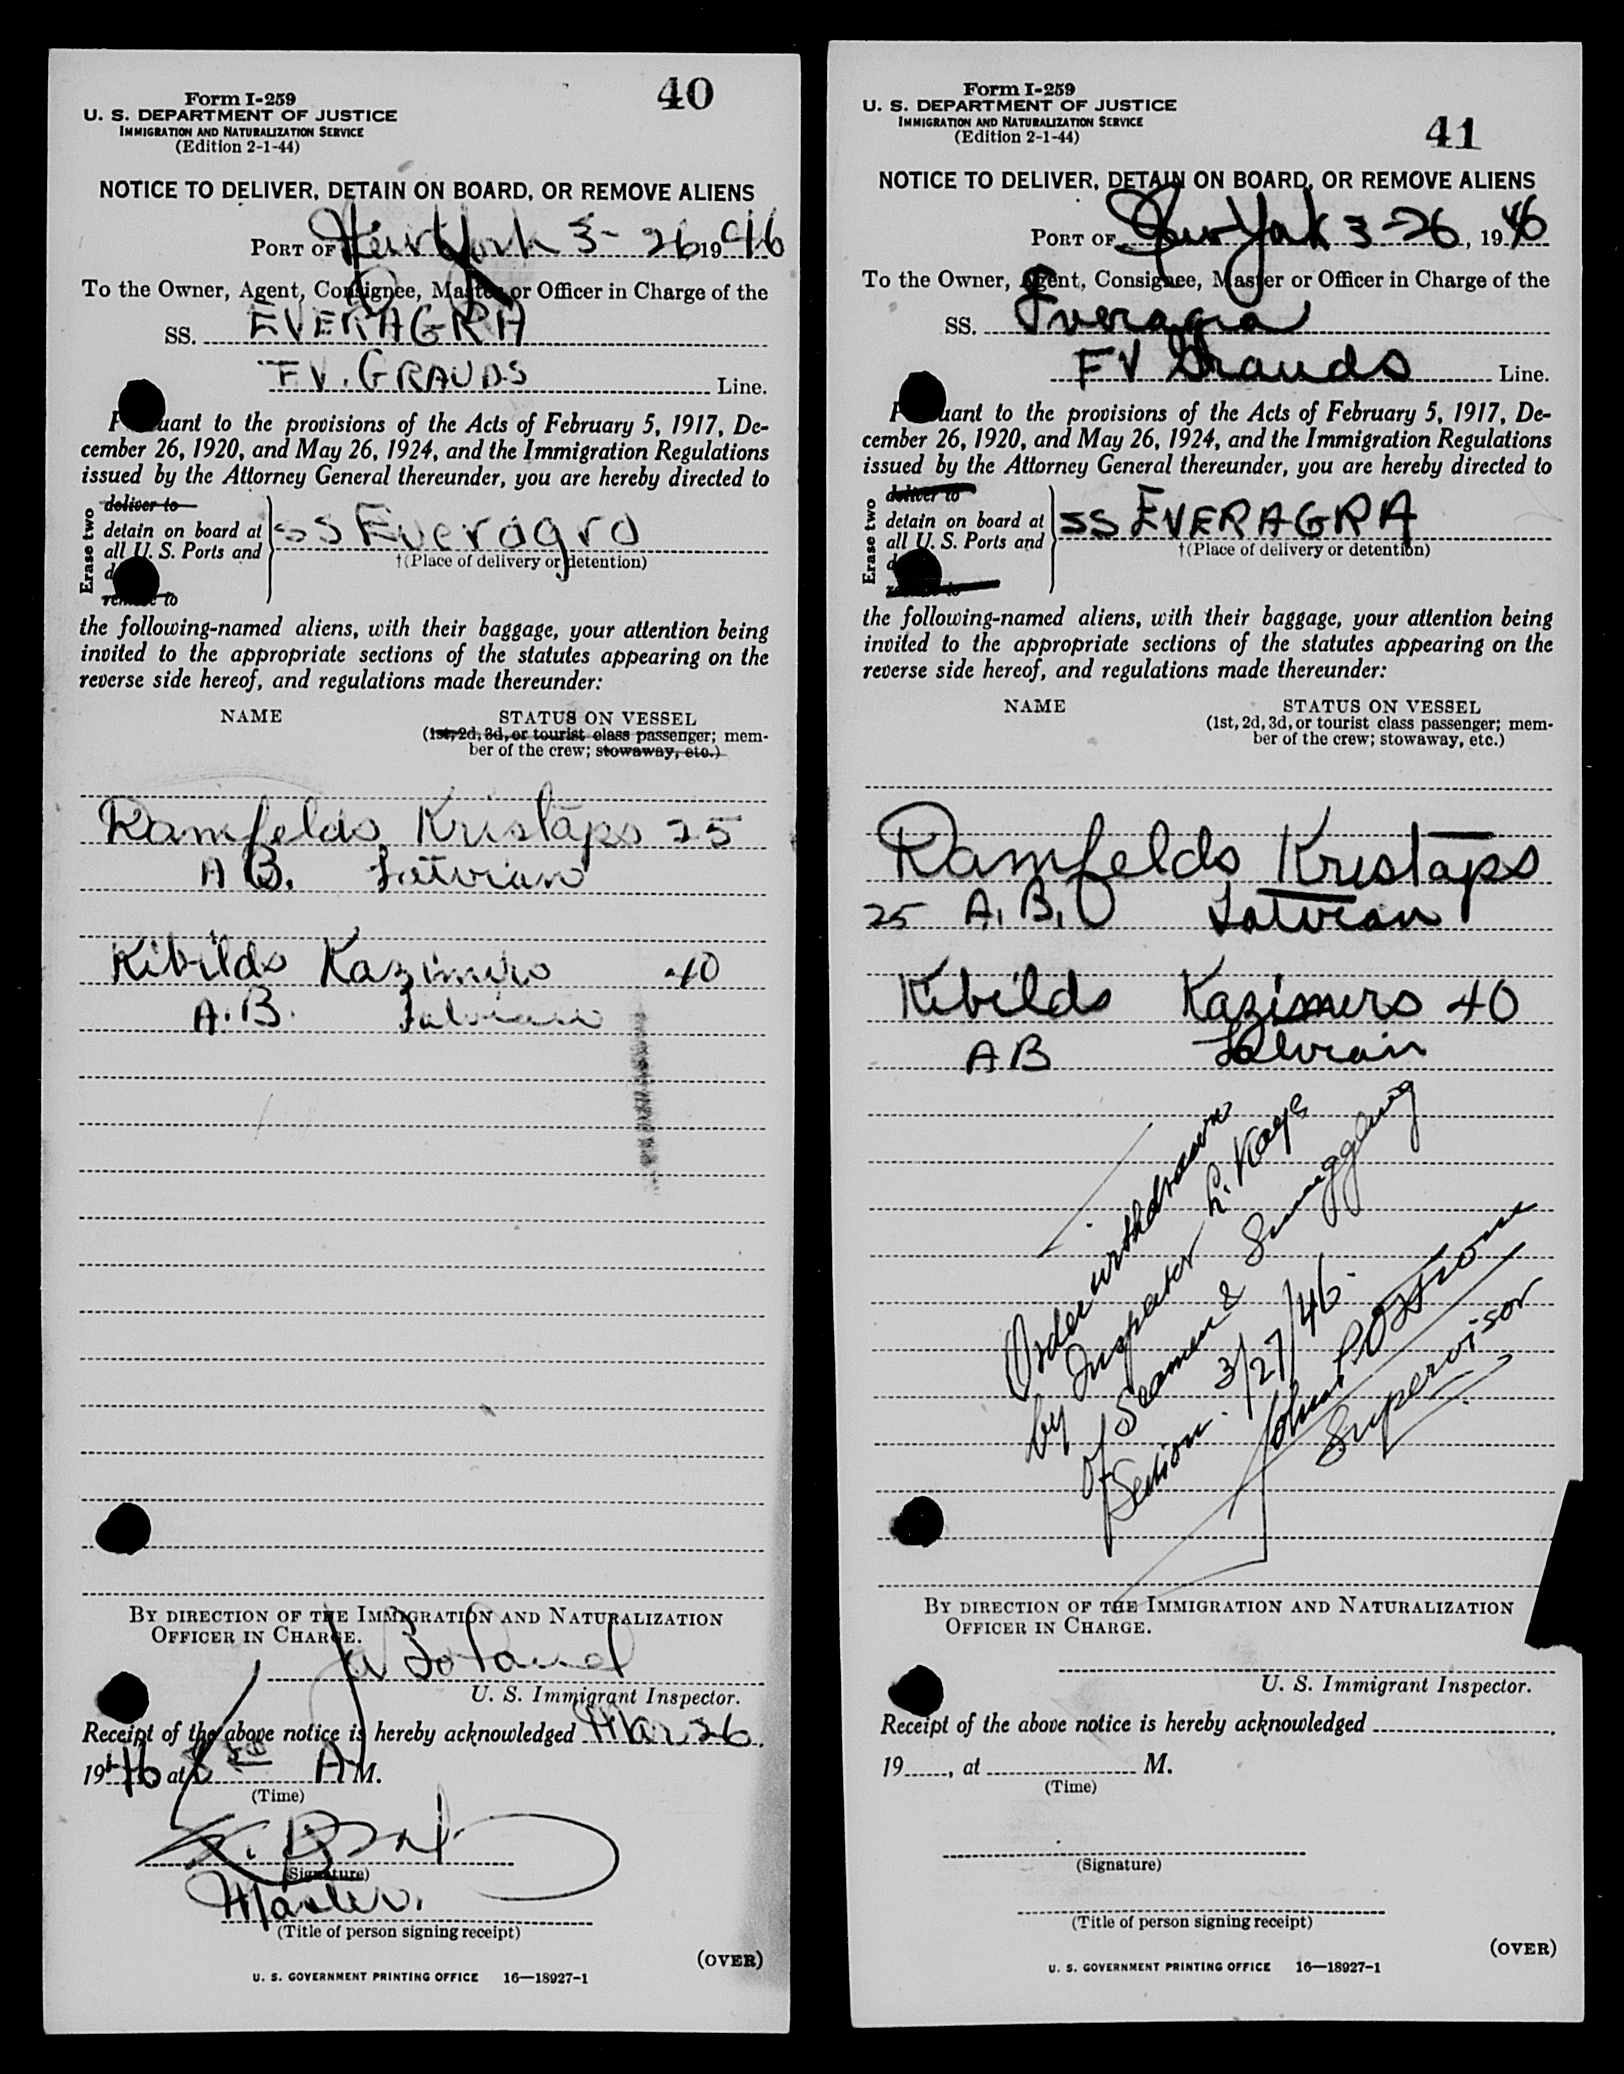 40
Form I-259
U. S. DEPARTMENT OF JUSTICE
IMMIGRATION AND NATURALIZATION SERVICE
(Edition 2-1-44)
NOTICE TO DELIVER, DETAIN ON BOARD, OR REMOVE ALIENS
PORT OF New York 3- 26, 1946
To the Owner, Agent, Consignee, Master or Officer in Charge of the
SS. EVERAGRA
F.V. GRAUDS Line.
uant to the provisions of the Acts of February 5, 1917, De-
cember 26, 1920, and May 26, 1924, and the Immigration Regulations
issued by the Attorney General thereunder, you are hereby directed to
Erase two
deliver to
detain on board at
all U. S. Ports and
SS Everagra
†(Place of delivery or detention)
remove to
the following-named aliens, with their baggage, your attention being
invited to the appropriate sections of the statutes appearing on the
reverse side hereof, and regulations made thereunder:
NAME STATUS ON VESSEL
(1st, 2d, 3d, or tourist class passenger; mem-
ber of the crew; stowaway, etc.)
Ramfelds Kristaps 25
A B. Latvian
Kibilds Kazimirs 40
A.B. Latvian
BY DIRECTION OF THE IMMIGRATION AND NATURALIZATION
OFFICER IN CHARGE.
U. S. Immigrant Inspector.
Receipt of the above notice is hereby acknowledged Mar. 26,
1946 at A M.
(Time)
(Signature)
Master.
(Title of person signing receipt)
(OVER)
U. S. GOVERNMENT PRINTING OFFICE 16—18927-1
41
Form I-259
U. S. DEPARTMENT OF JUSTICE
IMMIGRATION AND NATURALIZATION SERVICE
(Edition 2-1-44)
NOTICE TO DELIVER, DETAIN ON BOARD, OR REMOVE ALIENS
PORT OF New York 3-26, 1946
To the Owner, Agent, Consignee, Master or Officer in Charge of the
SS. Everagra
FV Grauds Line.
uant to the provisions of the Acts of February 5, 1917, De-
cember 26, 1920, and May 26, 1924, and the Immigration Regulations
issued by the Attorney General thereunder, you are hereby directed to
Erase two
deliver to
detain on board at
all U. S. Ports and
SS EVERAGRA
†(Place of delivery or detention)
the following-named aliens, with their baggage, your attention being
invited to the appropriate sections of the statutes appearing on the
reverse side hereof, and regulations made thereunder:
NAME STATUS ON VESSEL
(1st, 2d, 3d, or tourist class passenger; mem-
ber of the crew; stowaway, etc.)
Ramfelds Kristaps
25 A.B. Latvian
Kibilds Kazimirs 40
AB Latvian
Order withdrawn
by Inspector L. Kaye
of Seamen & Smuggling
Section. 3/27/46.
John
Supervisor
BY DIRECTION OF THE IMMIGRATION AND NATURALIZATION
OFFICER IN CHARGE.
U. S. Immigrant Inspector.
Receipt of the above notice is hereby acknowledged
19, at M.
(Time)
(Signature)
(Title of person signing receipt)
(OVER)
U. S. GOVERNMENT PRINTING OFFICE 16—18927-1